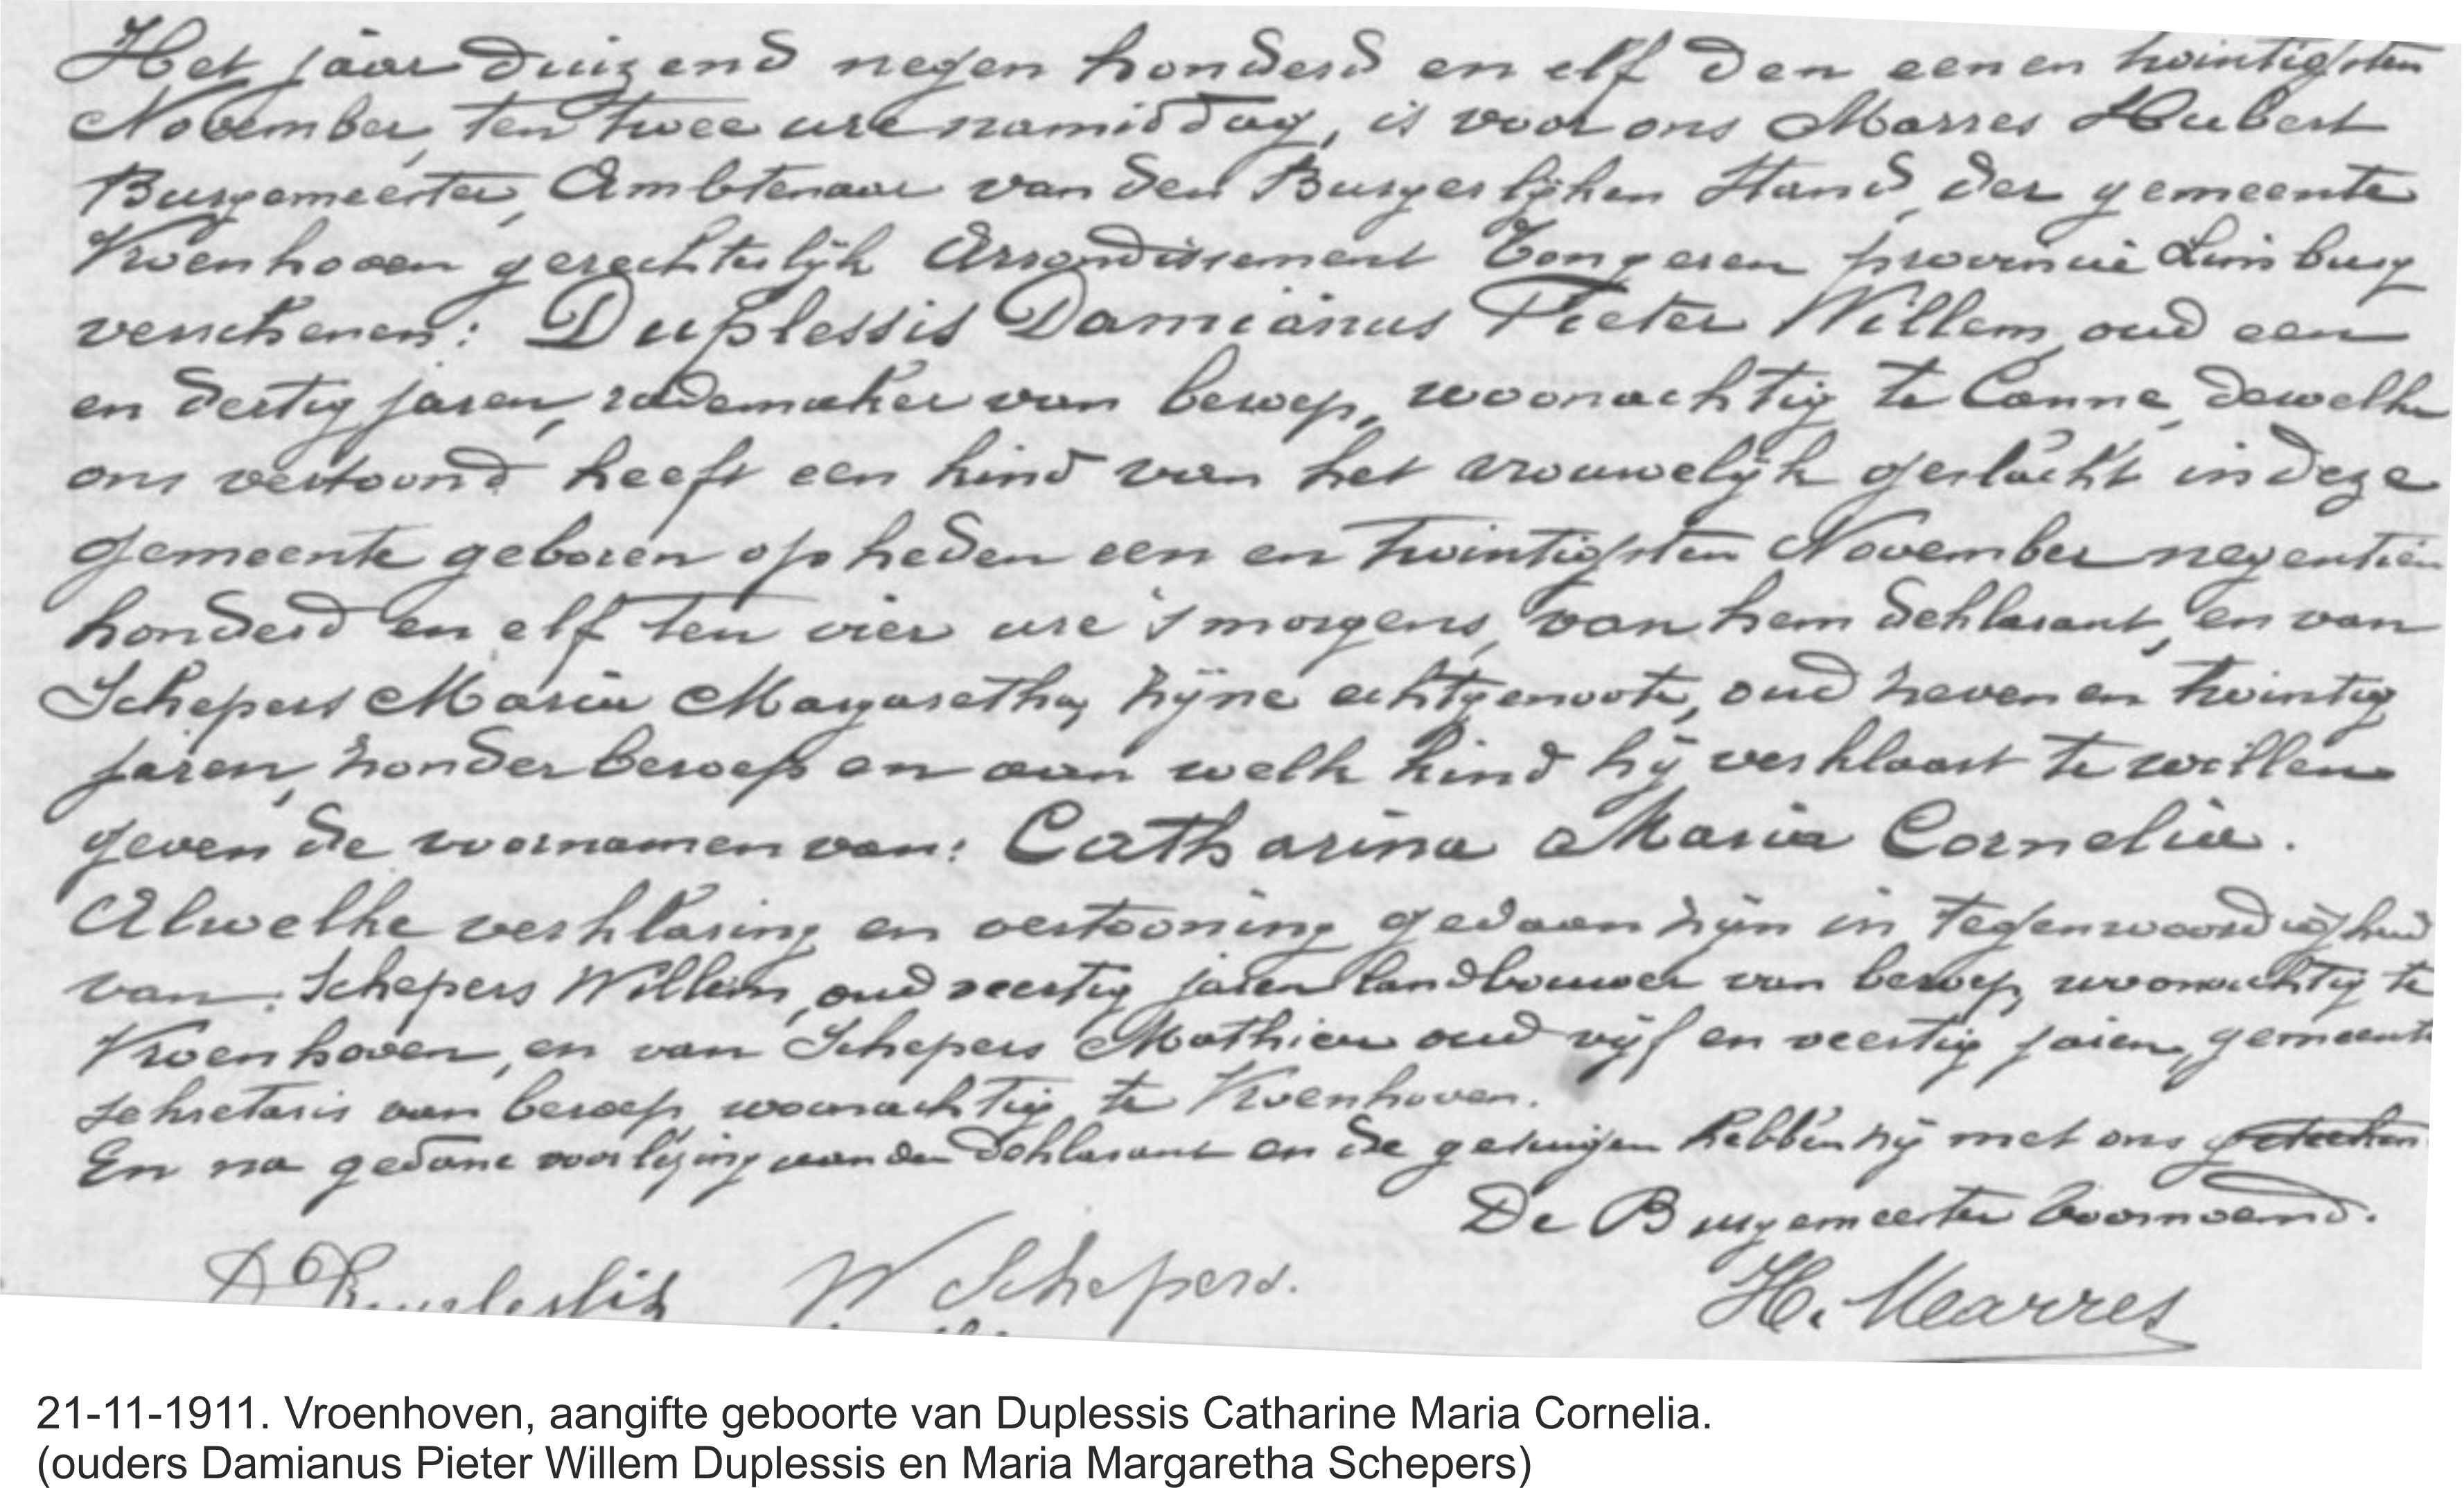 Het jaar duizend negen honderd en elf den eenen twintigsten
November, ten twee ure namiddag, is voor ons Marres Hubert
Burgemeester, Ambtenaar van den Burgerlijken Stand, der gemeente
Vroenhoven gerechterlijk Arrondissement Tongeren provincie Limburg
verschenen: Duplessis Damianus Pieter Willem, oud een
en dertig jaren, rademaker van beroep, woonachtig te Canne, dewelke
ons vertoond heeft een kind van het vrouwelijk geslacht in deze
gemeente geboren op heden een en twintigsten November negentien
honderd en elf ten vier ure 's morgens, van hem deklarant, en van
Schepers Maria Margaretha, zijne echtgenoote, oud zeven en twintig
jaren, zonder beroep en aan welk kind hij verklaart te willen
geven de voornamen van: Catharina Maria Cornelia.
Alwelke verklaring en vertooning gedaan zijn in tegenwoordigheid
van: Schepers Willem, oud veertig jaren landbouwer van beroep, woonachtig te
Vroenhoven, en van Schepers Mathieu oud vijf en veertig jaren, gemeente
sekretaris van beroep, woonachtig te Vroenhoven.
En na gedane voorlezing aan den deklarant en de getuigen hebben zij met ons geteeken
De Burgemeester voornoemd.
D Duplessis W Schepers. H. Marres
21-11-1911. Vroenhoven, aangifte geboorte van Duplessis Catharine Maria Cornelia.
(ouders Damianus Pieter Willem Duplessis en Maria Margaretha Schepers)